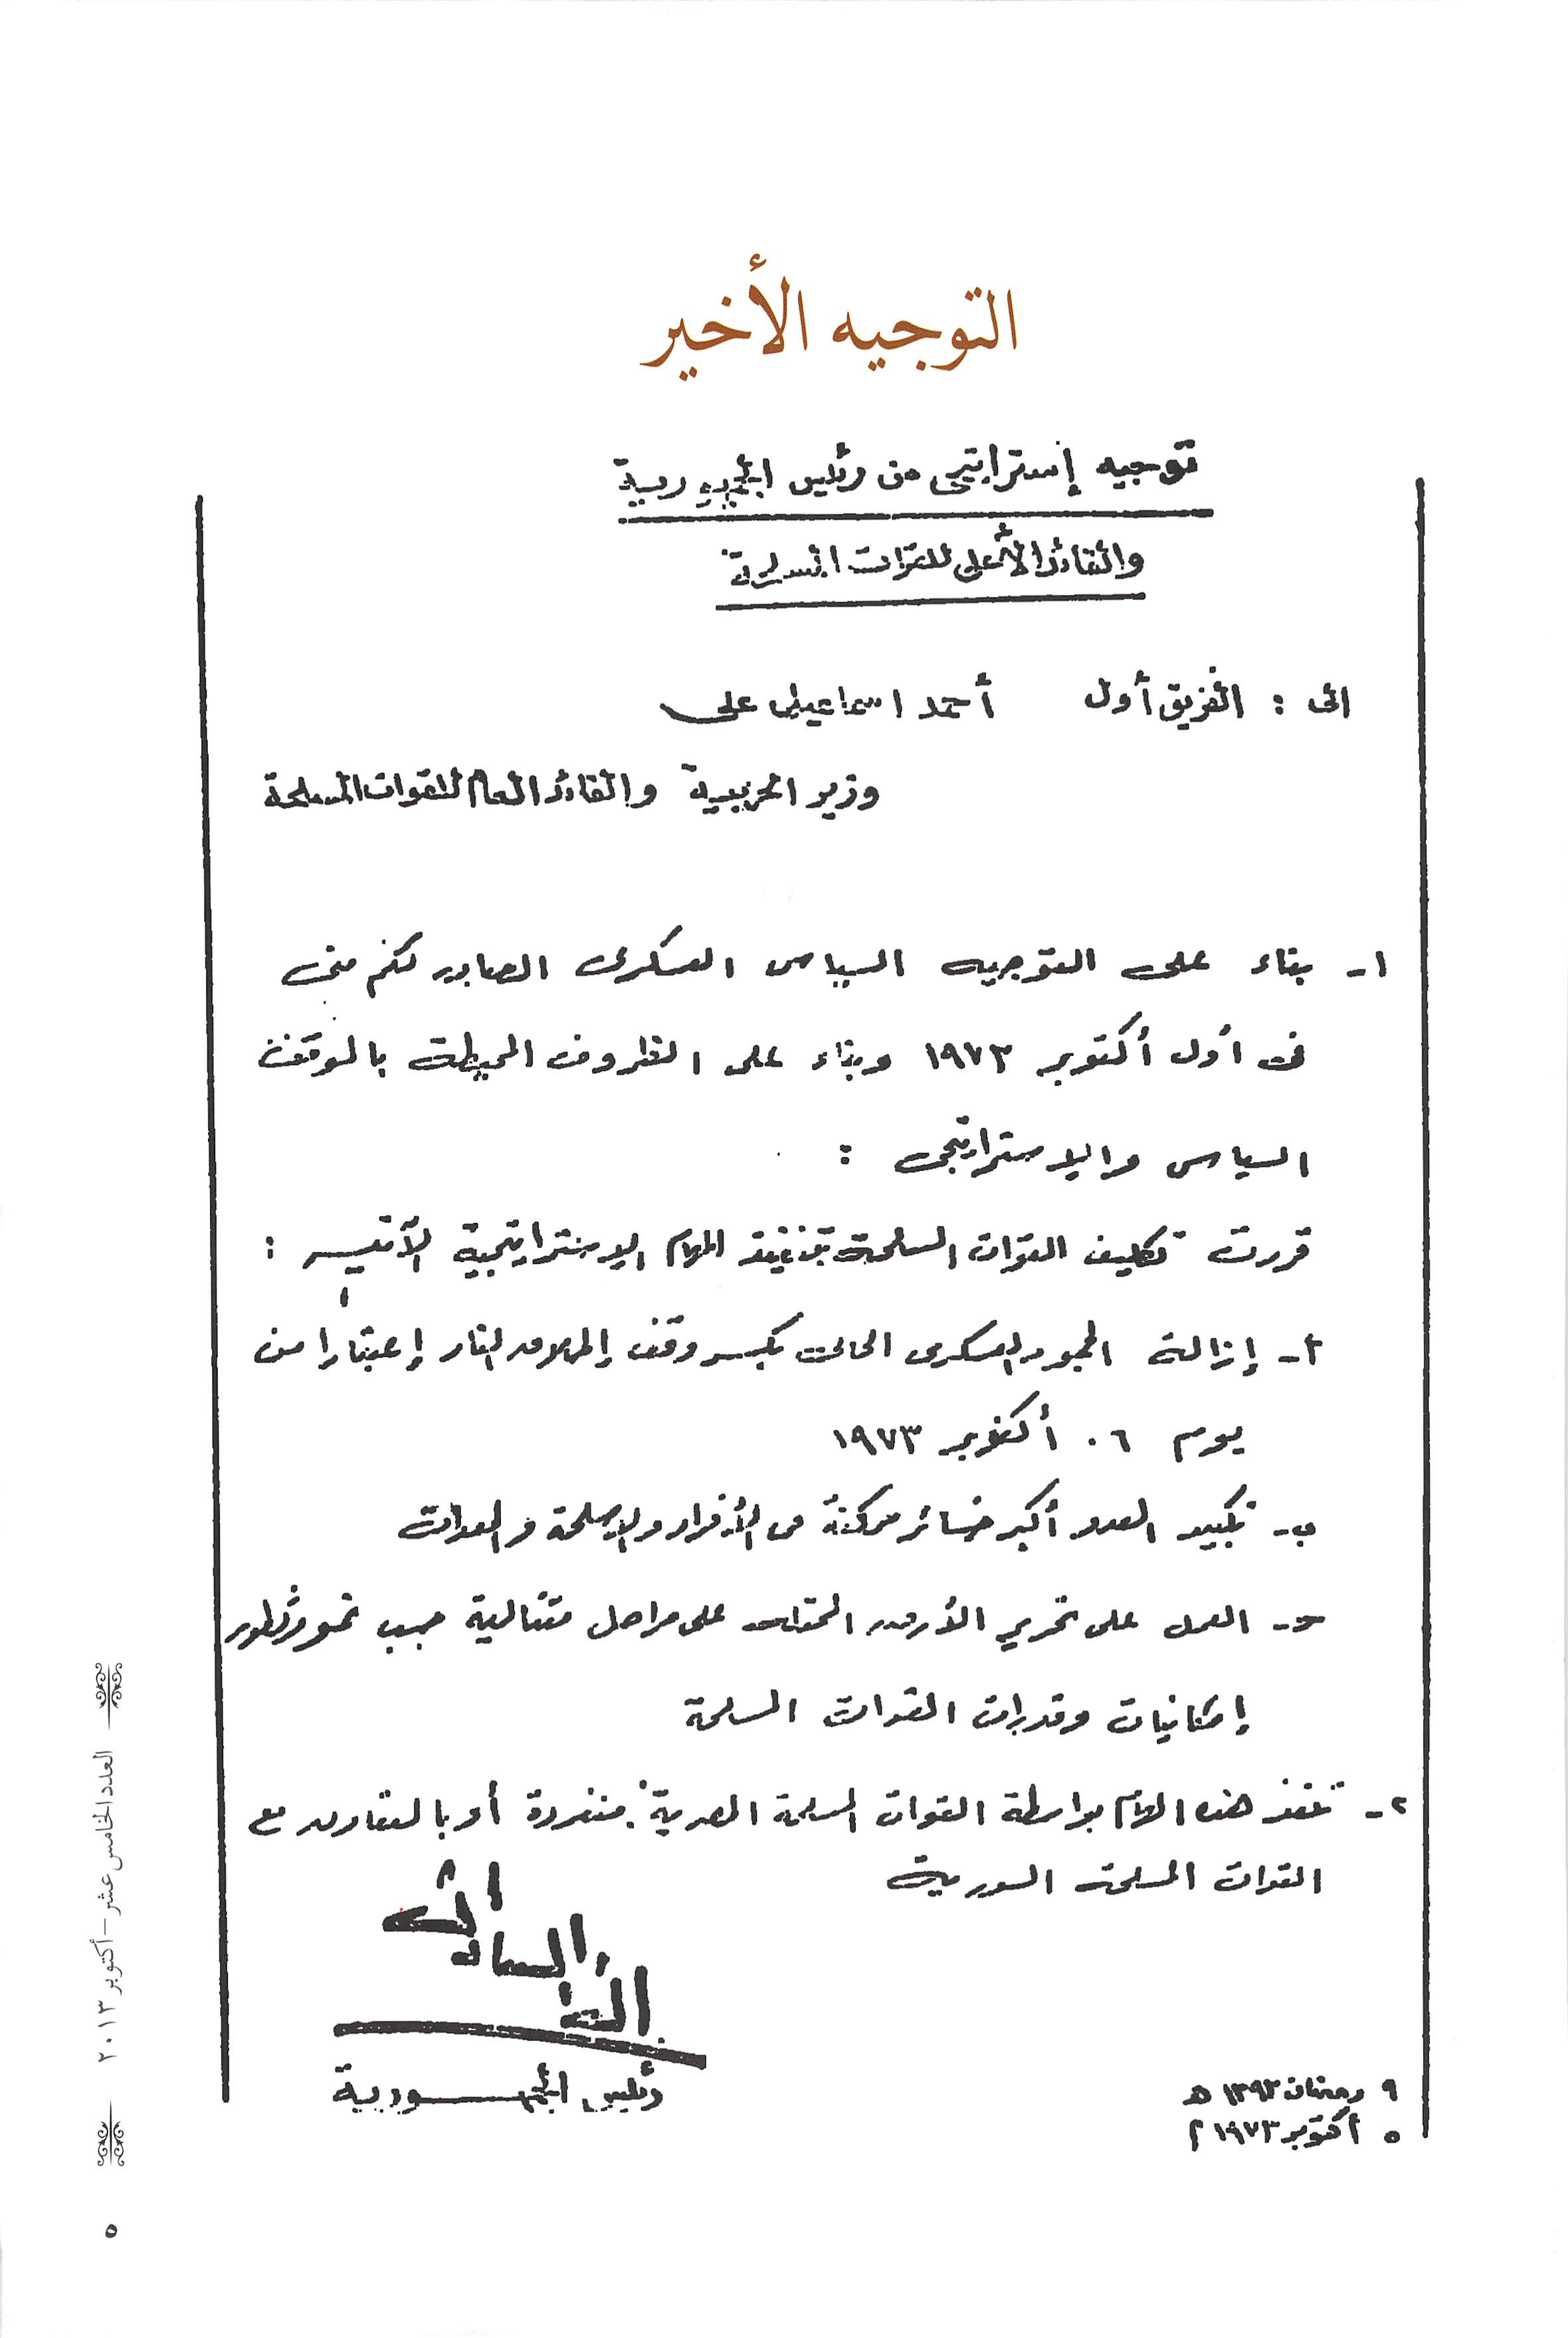 التوجيه الأخير
توجيه إستراتيجى من رئيس الجمهورية
والقائد الأعلى للقوات المسلحة
الى : الفريق أول أحمد اسماعيل على
وزير الحربية والقائد العام للقوات المسلحة
١- بناء على التوجيه السياسى العسكرى الصادر لكم منى
فى أول أكتوبر ١٩٧٣ وبناء على الظروف المحيطة بالموقف
السياسى والاستراتيجى :
قررت تكليف القوات المسلحة بتنفيذ المهام الاستراتيجية الآتية :
أ- إزالة الجمود العسكرى الحالى بكسر وقف إطلاق النار إعتبارا من
يوم ٠٦ أكتوبر ١٩٧٣
ب- تكبيد العدو أكبر خسائر ممكنة من الأفراد والاسلحة والمعدات
ج- العمل على تحرير الأرض المحتلة على مراحل متتالية حسب نمو وتطور
إمكانيات وقدرات القوات المسلحة
٢- تنفذ هذه المهام بواسطة القوات المسلحة المصرية منفردة أو بالتعاون مع
القوات المسلحة السورية
أنور السادات
رئيس الجمهورية
٩ رمضان ١٣٩٣ هـ
٥ أكتوبر ١٩٧٣ م
العدد الخامس عشر - أكتوبر ٢٠١٣
٥